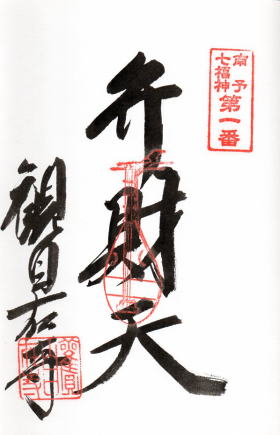 南予
七福神
第一番
弁財天
観自在寺